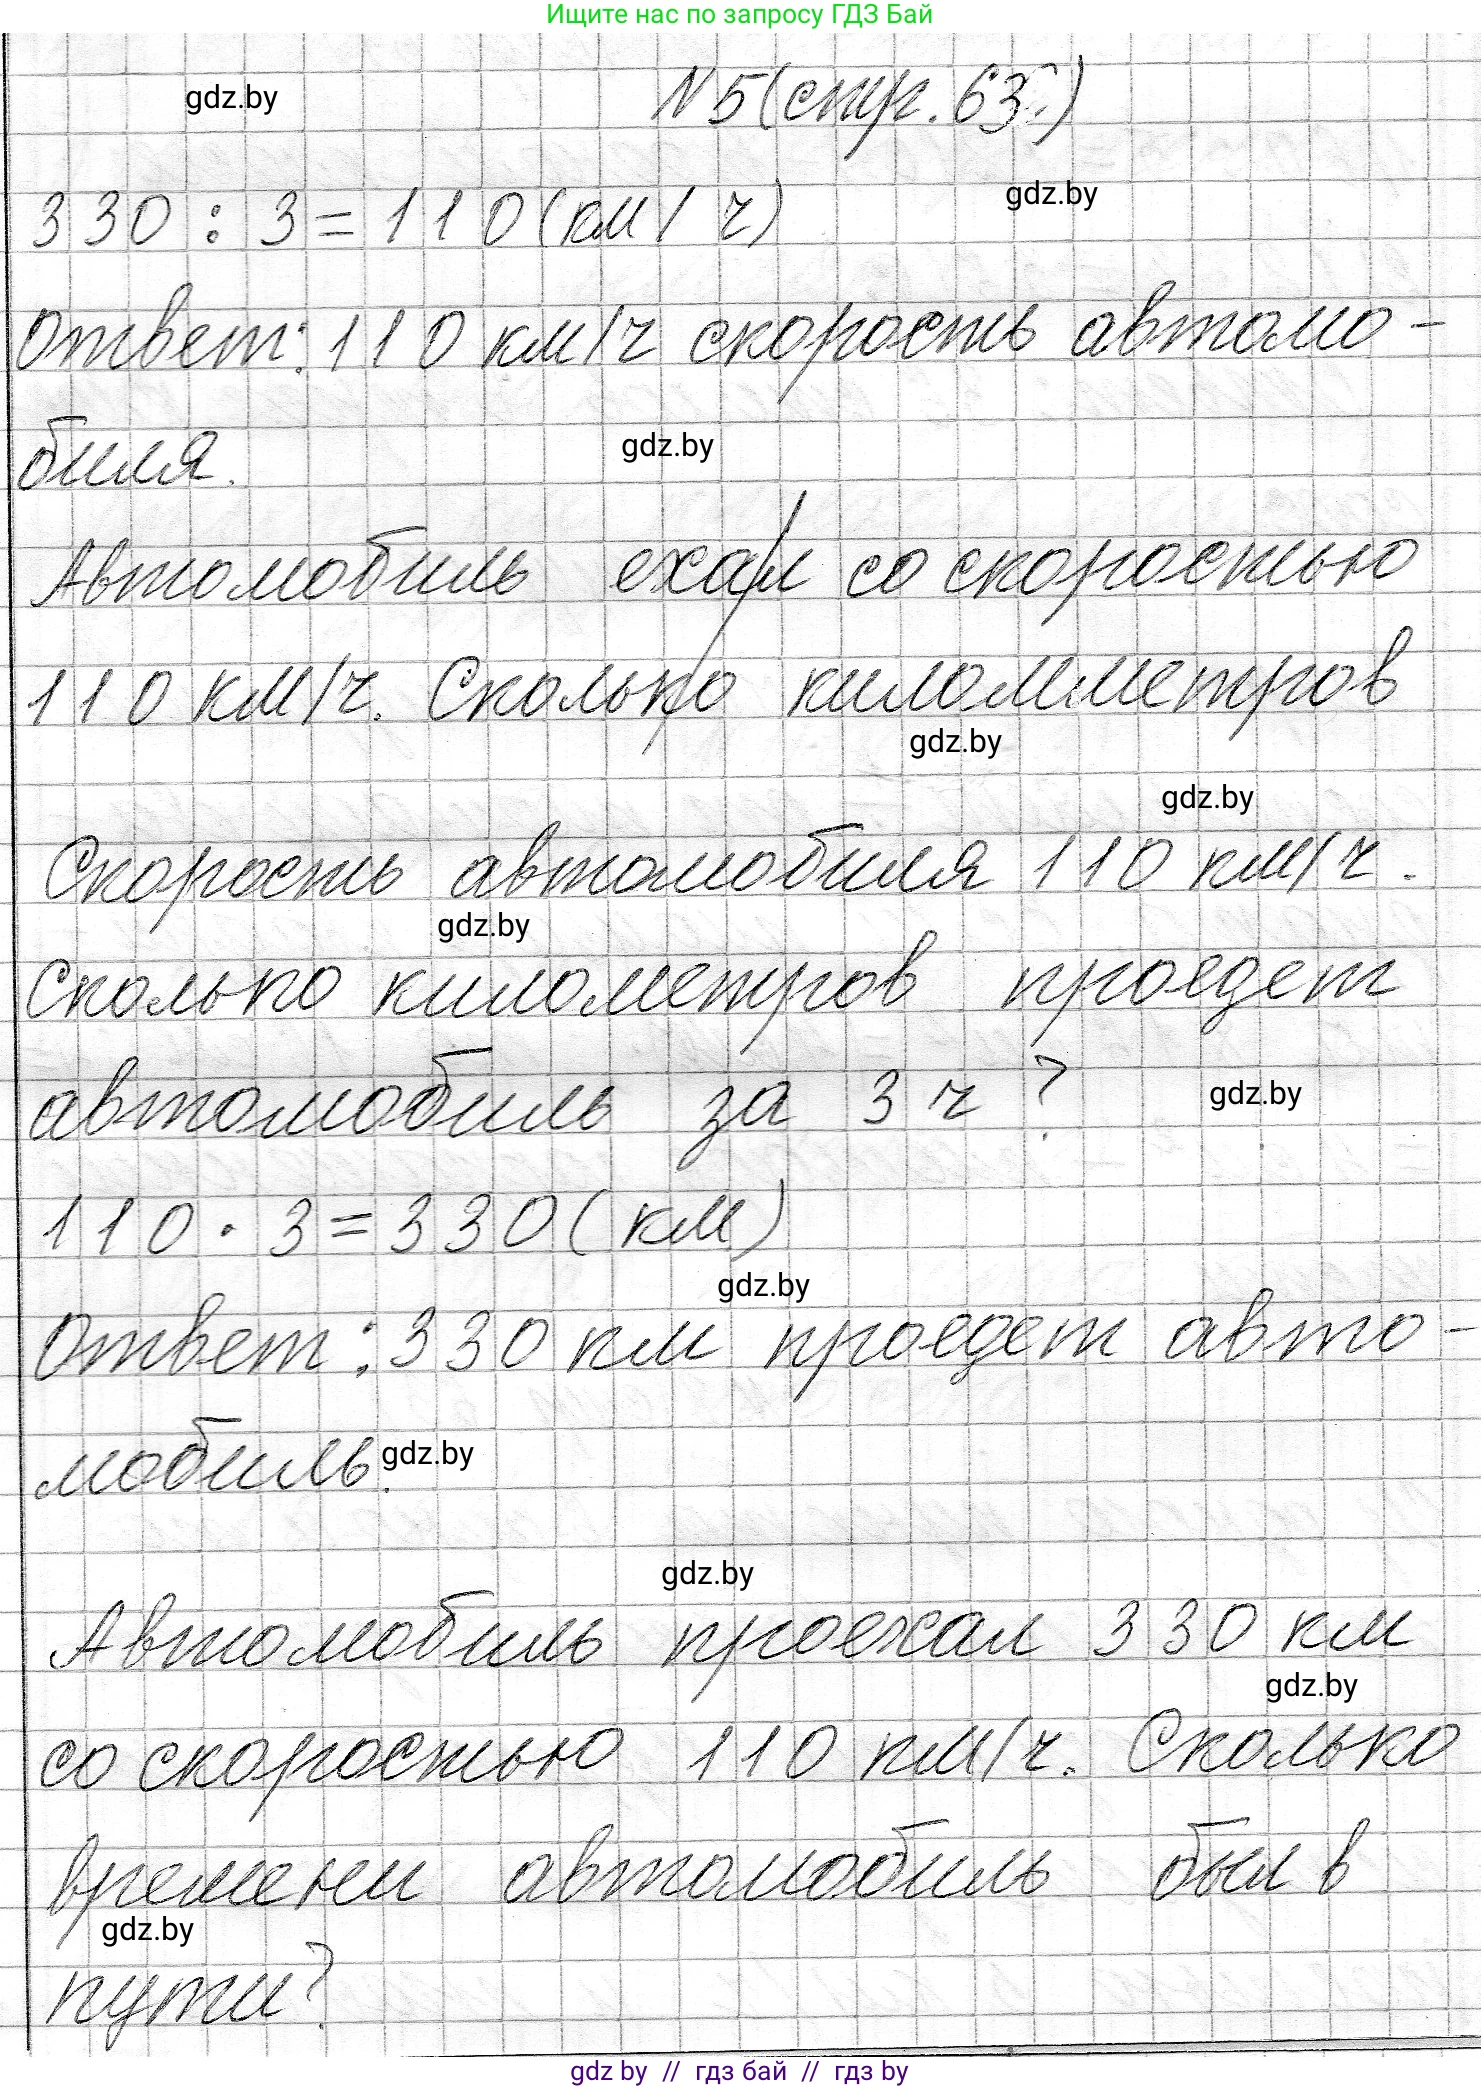 Ищите нас по запросу ГДЗ Бай
N5(стр. 63.)
gdz.by
330 : 3 = 110 (км/ч)
gdz.by
Ответ: 110 км/ч скорость автомо-
биля.
gdz.by
Автомобиль ехал со скоростью
110 км/ч. Сколько киломметров
gdz.by
gdz.by
Скорость автомобиля 110 км/ч.
gdz.by
Сколько километров проедет
автомобиль за 3 ч ?
gdz.by
110 · 3 = 330 ( км )
gdz.by
Ответ : 330 км проедет авто-
мобиль.
gdz.by
gdz.by
Автомобиль проехал 330 км
gdz.by
со скоростью 110 км/ч. Сколько
времени автомобиль был в
gdz.by
пути?
gdz.by // гдз бай // гдз by